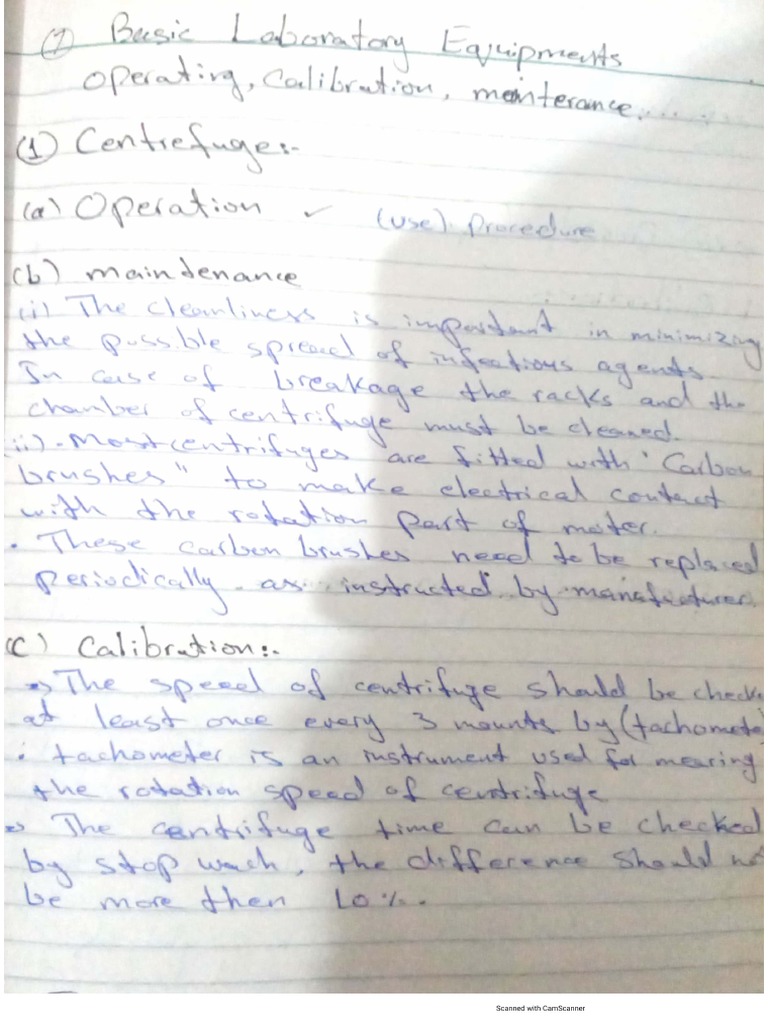 (7) Basic Laboratory Equipments
operating, calibration, mainterance......
(1) Centrefuge:-
(a) Operation ✓ (use) procedure
(b) maintenance
(i) The cleanliness is important in minimizing
the possible spread of infectious agents
In case of breakage the racks and the
chamber of centrifuge must be cleaned.
(ii) - Most centrifuges are fitted with "Carbon
brushes" to make electrical contact
with the rotation part of moter.
• These carbon brushes need to be replaced
periodically as instructed by manafacturer.
(C) Calibration:-
=> The speed of centrifuge should be check
at least once every 3 mounts by (tachomete
: tachometer is an instrument used for mearing
the rotation speed of centrifuge
=> The centrifuge time can be checked
by stop wach, the difference should no
be more then 10%.
Scanned with CamScanner